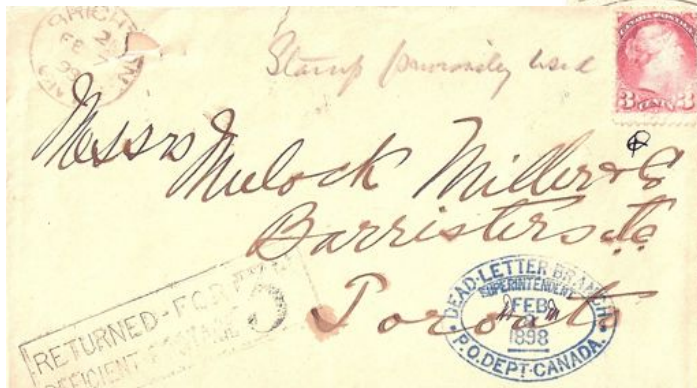 BRIGHTON
FE 2
98
Stamp previously used
CANADA POSTAGE
3 CENTS 3
Messrs Mulock Miller &
Barristers &c
Toronto
RETURNED-FOR
DEFICIENT POSTAGE
DEAD-LETTER BRANCH
SUPERINTENDENT
FEB
1898
P.O. DEPT-CANADA.